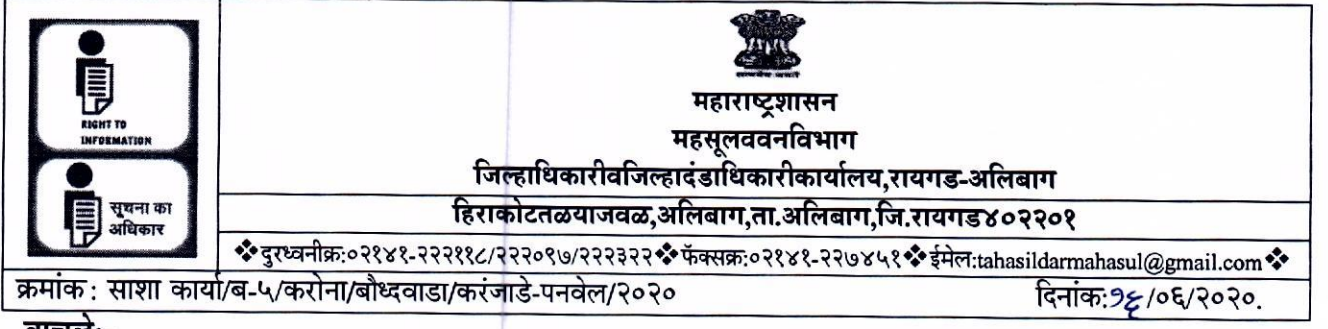 RIGHT TO
INFORMATION
सूचना का
अधिकार
महाराष्ट्रशासन
महसूलववनविभाग
जिल्हाधिकारीवजिल्हादंडाधिकारीकार्यालय,रायगड-अलिबाग
हिराकोटतळयाजवळ,अलिबाग,ता.अलिबाग,जि.रायगड४०२२०१
❖दुरध्वनीक्र:०२१४१-२२२११८/२२२०९७/२२२३२२❖फॅक्सक्र:०२१४१-२२७४५१❖ईमेल:tahasildarmahasul@gmail.com❖
क्रमांक : साशा कार्या/ब-५/करोना/बौध्दवाडा/करंजाडे-पनवेल/२०२० दिनांक:१६/०६/२०२०.